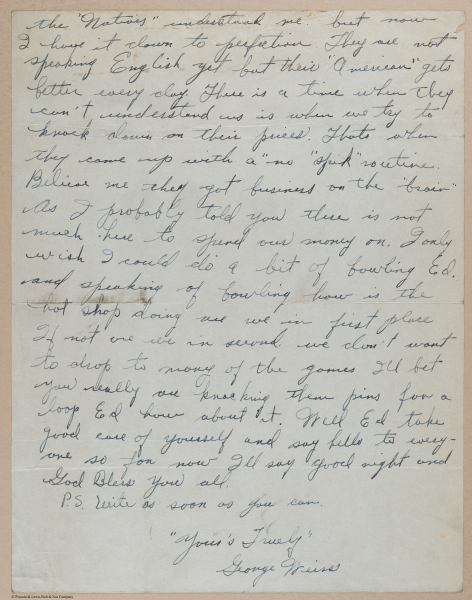 the "Natives" understand me, but now
I have it down to perfection. They are not
speaking English yet but their "American" gets
better every day. There is a time when they
can't understand us is when we try to
knock down on their prices. Thats when
they come up with a "no "spik" routine.
Believe me they got business on the "brain"
As I probably told you there is not
much here to spend our money on. I only
wish I could do a bit of bowling Ed.
and speaking of bowling how is the
hot shop doing are we in first place
If not are we in second. we don't want
to drop to many of the games I'll bet
you really are knocking them pins for a
loop Ed how about it. Well Ed take
good care of yourself and say hello to every-
one so for now I'll say good night and
God Bless you all.
P.S. Write as soon as you can.
"Your's Truely"
George Weiss